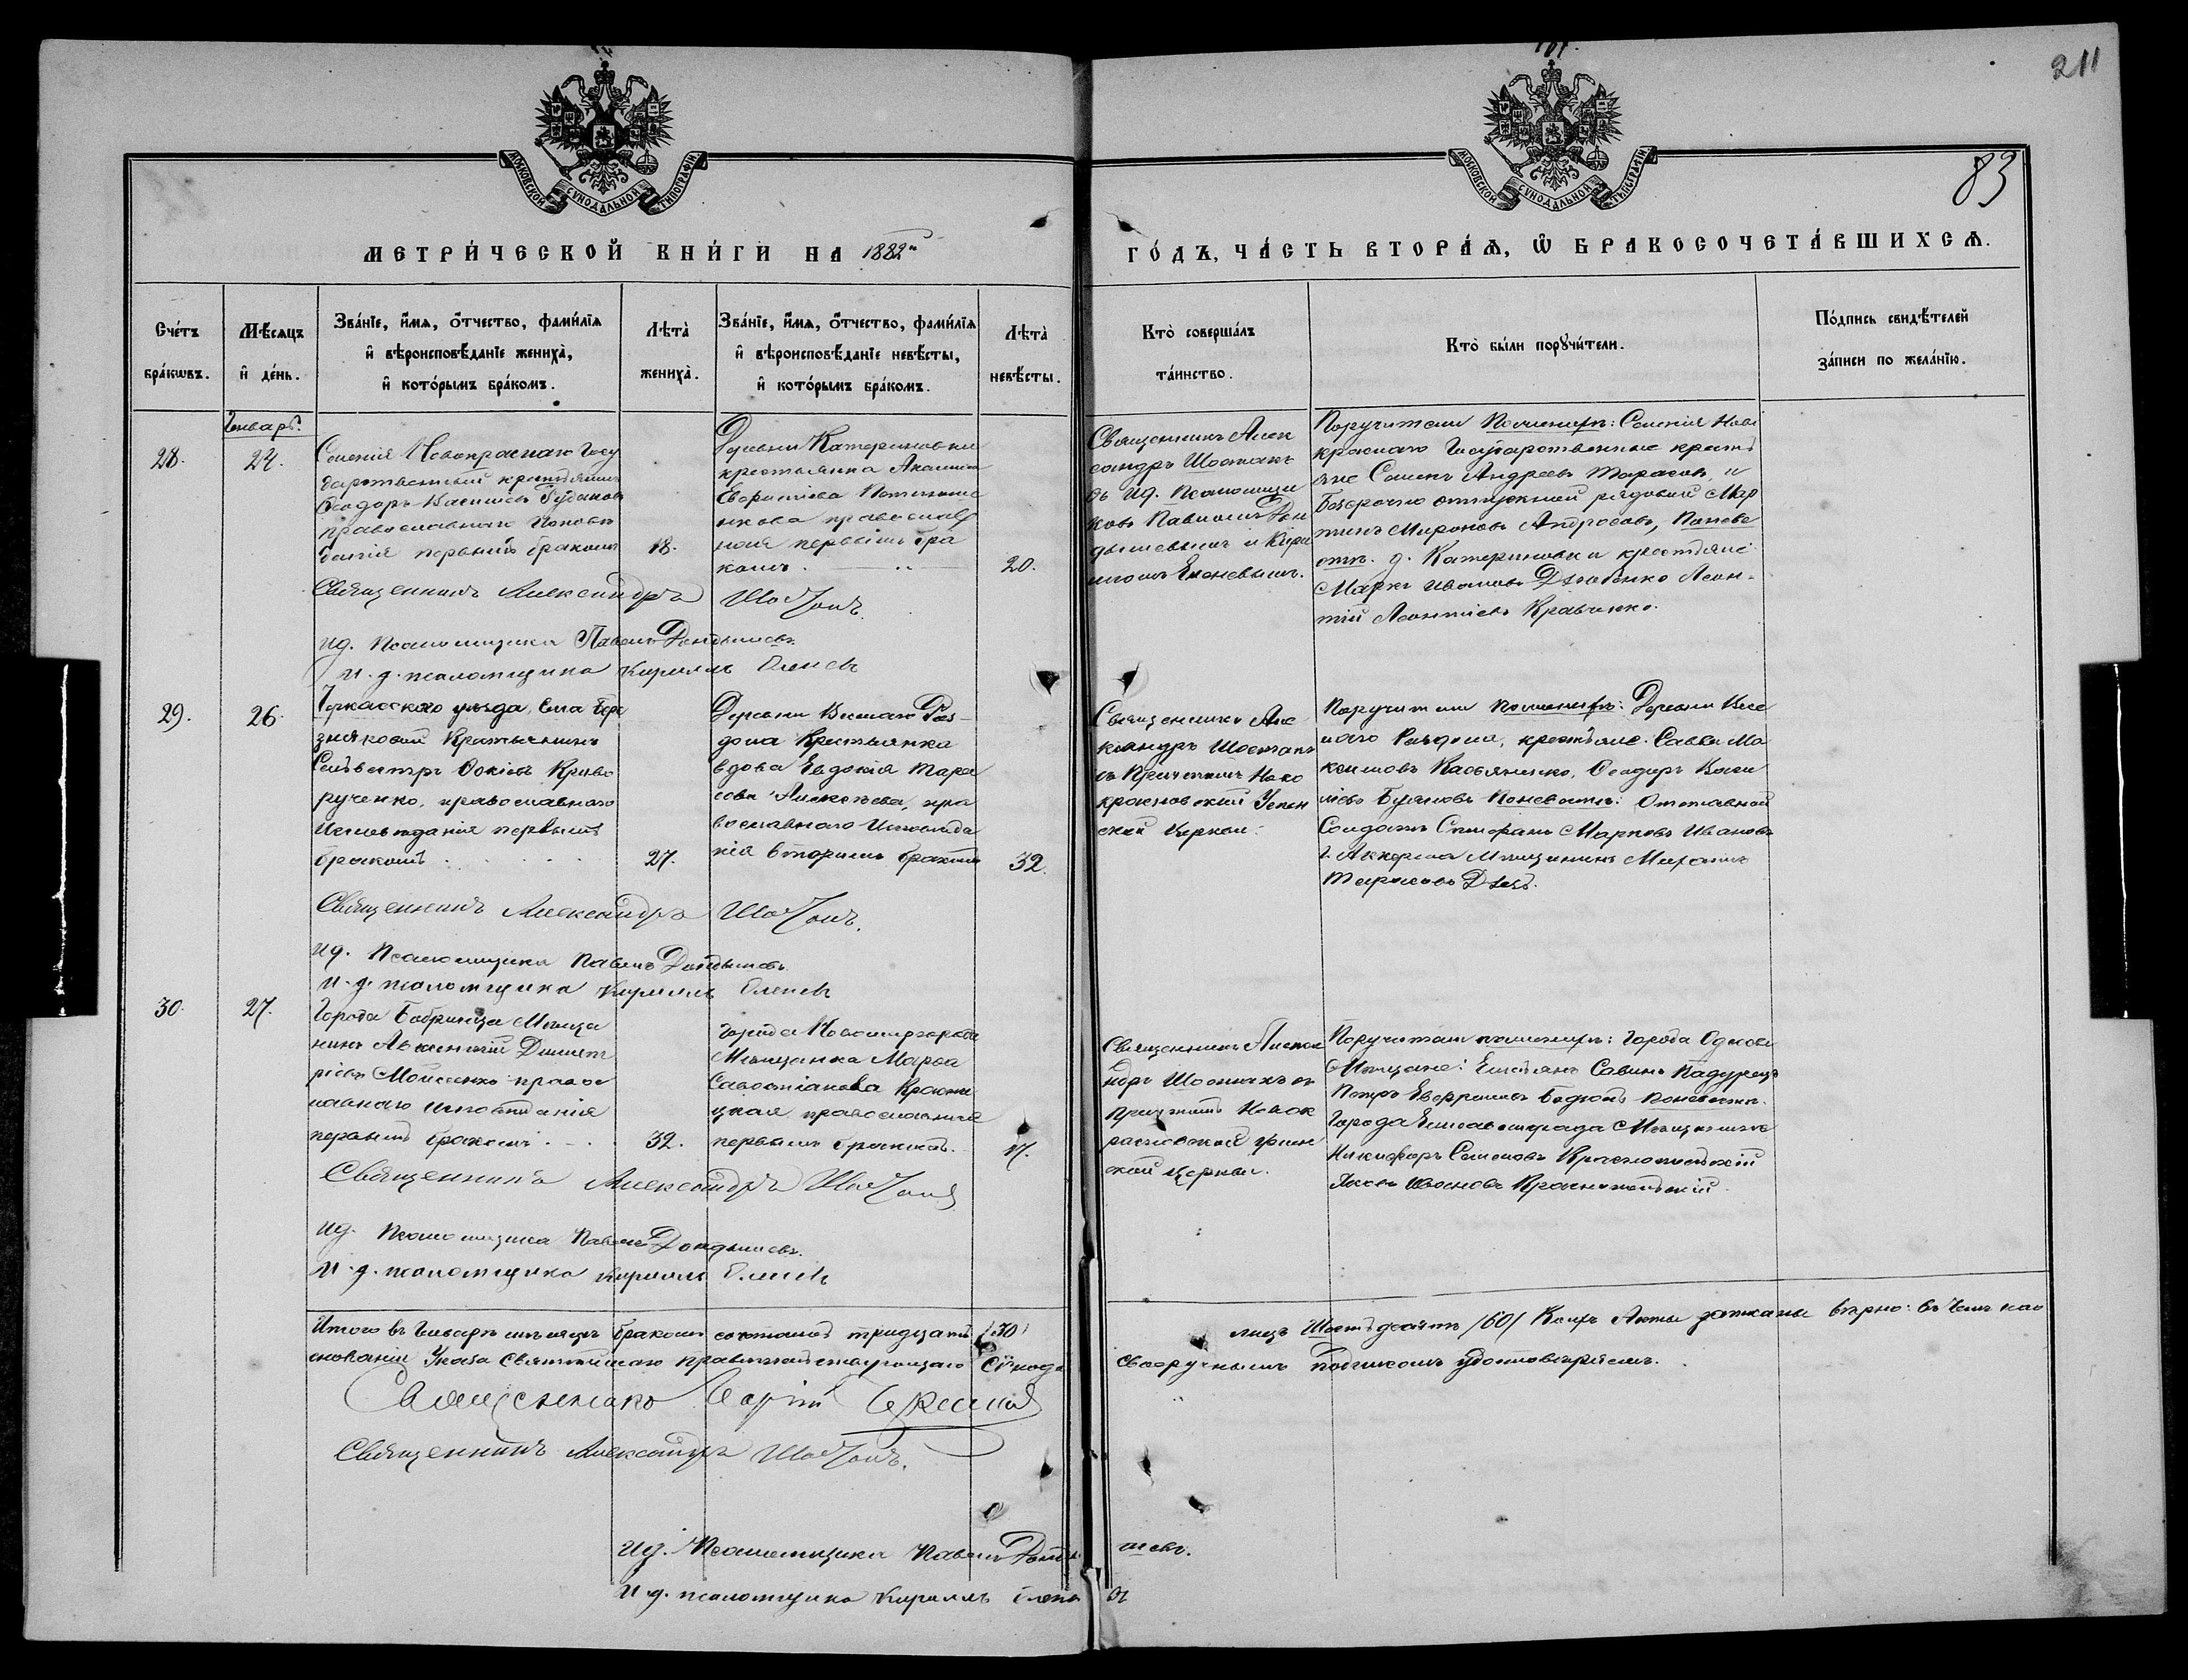 211
83
МОСКОВСКОЙ СѴНОДАЛЬНОЙ ТИПОГРАФІИ
МОСКОВСКОЙ СѴНОДАЛЬНОЙ ТИПОГРАФІИ
МЕТРИ́ЧЕСКОЙ КНИ́ГИ НА 1882й
ГО́ДЪ, ЧА́СТЬ ВТОРА́Ѧ, Ѿ БРАКОСОЧЕТА́ВШИХСѦ.
Сче́тъ
бра́кѡвъ.
Мѣ́сѧцъ
и҆ де́нь.
Зва́нїе, и҆́мѧ, ѻ҆́тчество, фами́лїѧ
и҆ вѣроисповѣ́данїе жениха̀,
и҆ кото́рымъ бра́комъ.
Лѣта̀
жениха̀.
Зва́нїе, и҆́мѧ, ѻ҆́тчество, фами́лїѧ
и҆ вѣроисповѣ́данїе невѣ́сты,
и҆ кото́рымъ бра́комъ.
Лѣта̀
невѣ́сты.
Кто̀ соверша́лъ
та́инство.
Кто̀ бы́ли порꙋчи́тели.
По́дпись свидѣ́телей
за́писи по жела́нїю.
Январь.
28.
24.
Селенія Новокраснаго Госу
дарственный крестьянинъ
Ѳеодоръ Василіевъ
православнаго исповѣ
данія первымъ бракомъ
18.
Деревни Катериновки
крестьянка
православ
ная первымъ бра
комъ.
20.
Священникъ Алек
сандръ Шостакъ
съ ид. псаломщи
ковъ Павломъ Дон
дышевымъ и Кири
ломъ Еленевымъ.
Поручители по женихѣ: Селенія Ново
краснаго Государственные крестья
яне Семенъ Андреевъ Тарасовъ, и
безсрочно отпускной рядовый Мар
тинъ Мироновъ Андросовъ, По неве
стѣ. д. Катериновки крестьяне
Маркъ Ивановъ Дзюбенко Леон-
тій Леонтіевъ Кравченко.
Священникъ Александръ Шостакъ.
ид. Псаломщика Павелъ Дондышевъ.
И. д. псаломщика Кириллъ Еленевъ
29.
26.
Черкасскаго уѣзда, Села Бере
зняковой Крестьянинъ
Сельвестръ Криво
рученко, православнаго
Исповѣданія первымъ
бракомъ
27.
Деревни Веселаго Роз-
дола Крестьянка
вдова Евдокія Тара
сова Алексѣева, пра
вославнаго Исповѣда
нія вторымъ бракомъ
32.
Священникъ Але
ксандръ Шостакъ
съ Причтомъ Ново
красновской Успен
ской Церкви.
Поручители по женихѣ: Деревни Весе
лаго Роздола, крестьяне. Савва Ма
ксимовъ Касьяненко, Ѳеодоръ Васи
ліевъ По невестѣ: Отставной
Солдатъ Стефанъ Марковъ Ивановъ
г. Аккермана Мѣщанинъ Михаилъ
Тарасовъ
Священникъ Александръ Шостакъ.
ид. Псаломщика Павелъ Дондышевъ.
И. д. псаломщика Кириллъ Еленевъ
30.
27.
Города Бобринца Мѣща
нинъ Авксентій Димит
ріевъ Моисеенко правос
лавнаго исповѣданія
первымъ бракомъ
32.
города Новомиргорода
Мѣщанка Марѳа
Савостіанова
православная
первымъ бракомъ.
17.
Священникъ Алекса
ндръ Шостакъ съ
причтомъ Новок
расновской Успен
ской Церкви.
Поручители по женихѣ: города Одессы
Мѣщане: Савинъ
Петръ По невестѣ.
Города Елисаветграда Мѣщанинъ
Никифоръ Семеновъ
Яковъ Ивановъ
Священникъ Александръ Шостакъ
ид. Псаломщика Павелъ Дондышевъ.
И. д. псаломщика Кириллъ Еленевъ
Итого въ Январѣ мѣсяцѣ бракомъ сочтаній тридцать (30) лицъ Шестьдесятъ (60) Коихъ Акты записаны вѣрно: въ чемъ на о
снованіи Указа Святѣйшаго правительствующаго Сѵнода своеручнымъ подписомъ удостовѣряемъ.
Священникъ
Священникъ Александръ Шостакъ.
ид. Псаломщика Павелъ Дондышевъ.
И. д. псаломщика Кириллъ Еленевъ